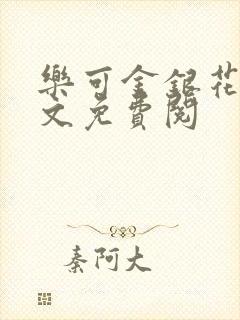 樂可金銀花
文免費閱
秦阿大